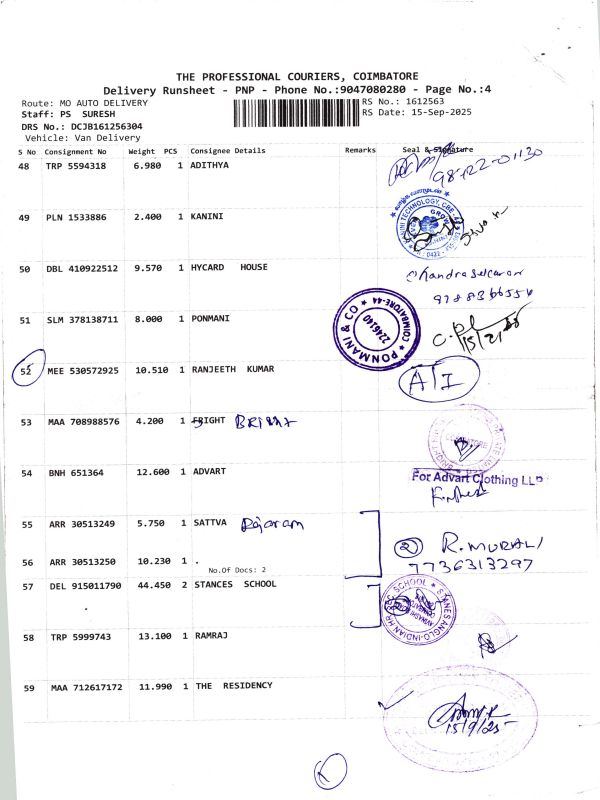 THE PROFESSIONAL COURIERS, COIMBATORE
Delivery Runsheet - PNP - Phone No.:9047080280 - Page No.:4
Route: MO AUTO DELIVERY RS No.: 1612563
Staff: PS SURESH RS Date: 15-Sep-2025
DRS No.: DCJB161256304
Vehicle: Van Delivery
S No Consignment No Weight PCS Consignee Details Remarks Seal & Signature
48 TRP 5594318 6.980 1 ADITHYA
98422-01130
49 PLN 1533886 2.400 1 KANINI
50 DBL 410922512 9.570 1 HYCARD HOUSE
Chandrasekaran
9788366554
51 SLM 378138711 8.000 1 PONMANI
PONMANI & CO
COIMBATORE-44
2246140
52 MEE 530572925 10.510 1 RANJEETH KUMAR
ATI
53 MAA 708988576 4.200 1 FRIGHT
54 BNH 651364 12.600 1 ADVART
For Advart Clothing LLP
55 ARR 30513249 5.750 1 SATTVA Rajaram
② R. MURALI
7736313297
56 ARR 30513250 10.230 1 .
No.Of Docs: 2
57 DEL 915011790 44.450 2 STANCES SCHOOL
STANES ANGLO-INDIAN HR. SEC. SCHOOL
58 TRP 5999743 13.100 1 RAMRAJ
59 MAA 712617172 11.990 1 THE RESIDENCY
15/9/25